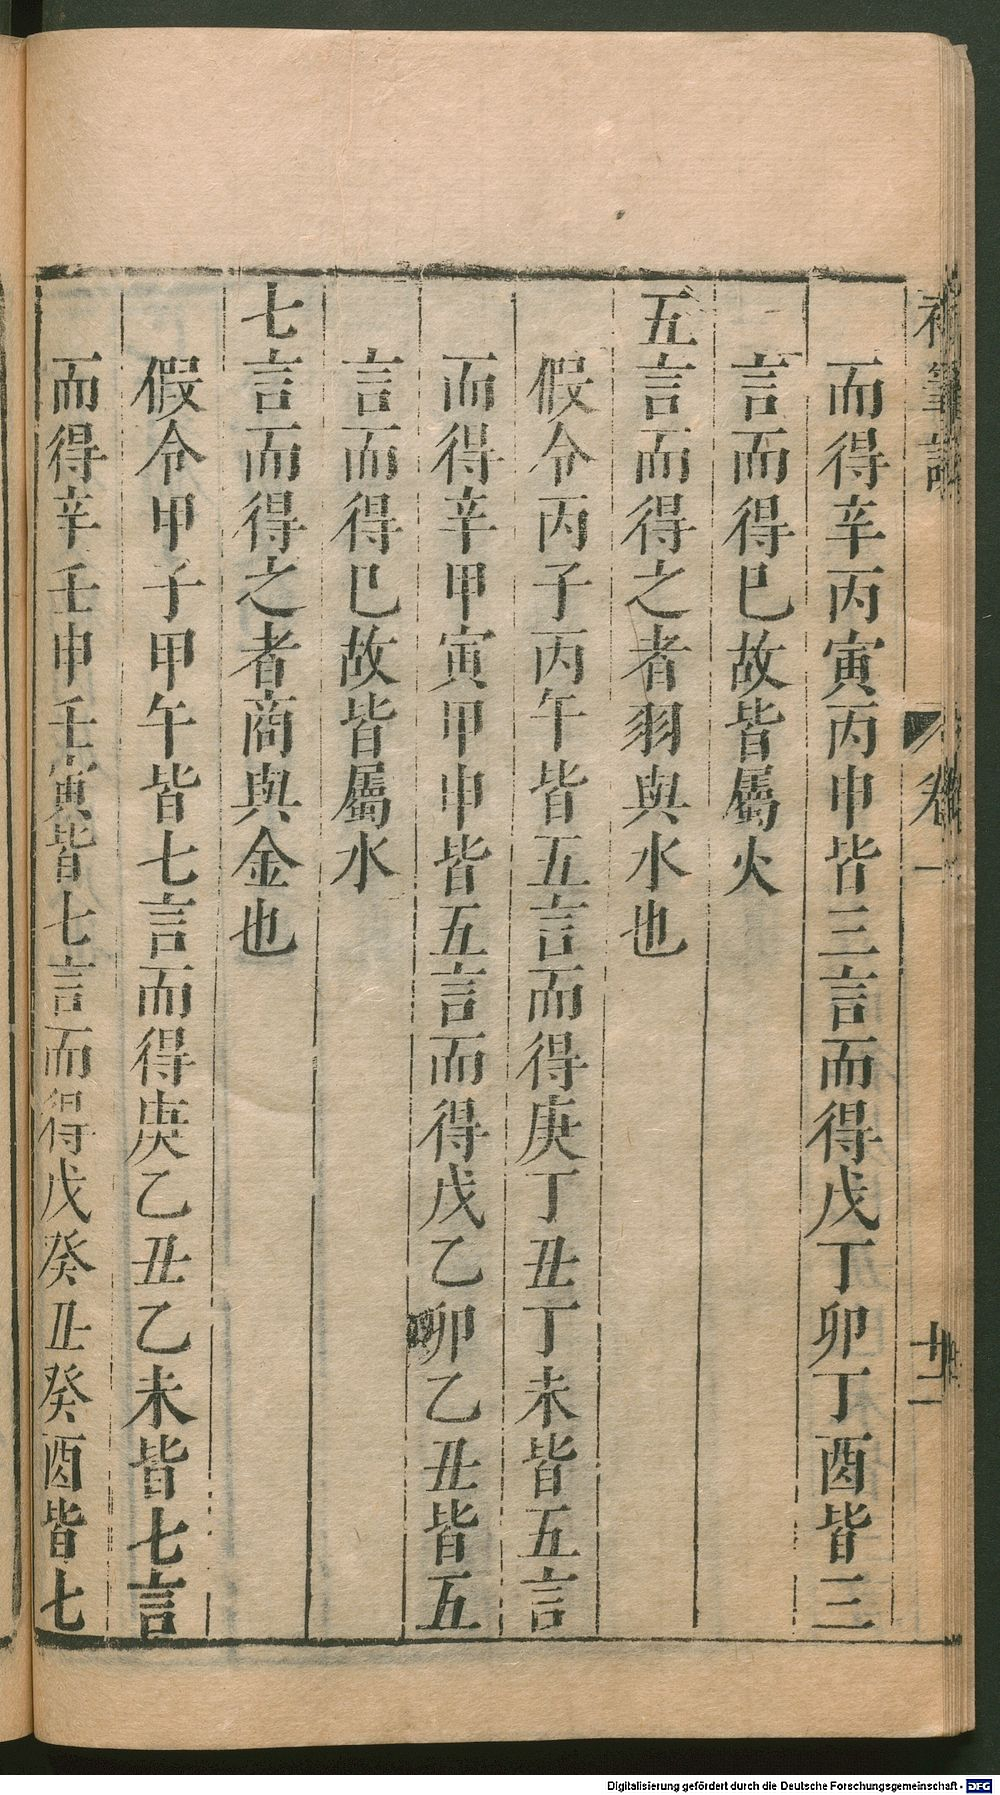 而得辛丙寅丙申皆三言而得戊丁卯丁酉皆三
言而得巳故皆屬火
五言而得之者羽與水也
假令丙子丙午皆五言而得庚丁丑丁未皆五言
而得辛甲寅甲申皆五言而得戊乙卯乙丑皆五
言而得巳故皆屬水
七言而得之者商與金也
假令甲子甲午皆七言而得庚乙丑乙未皆七言
而得辛壬申壬寅皆七言而得戊癸丑癸酉皆七
卷一
Digitalisierung gefördert durch die Deutsche Forschungsgemeinschaft - DFG